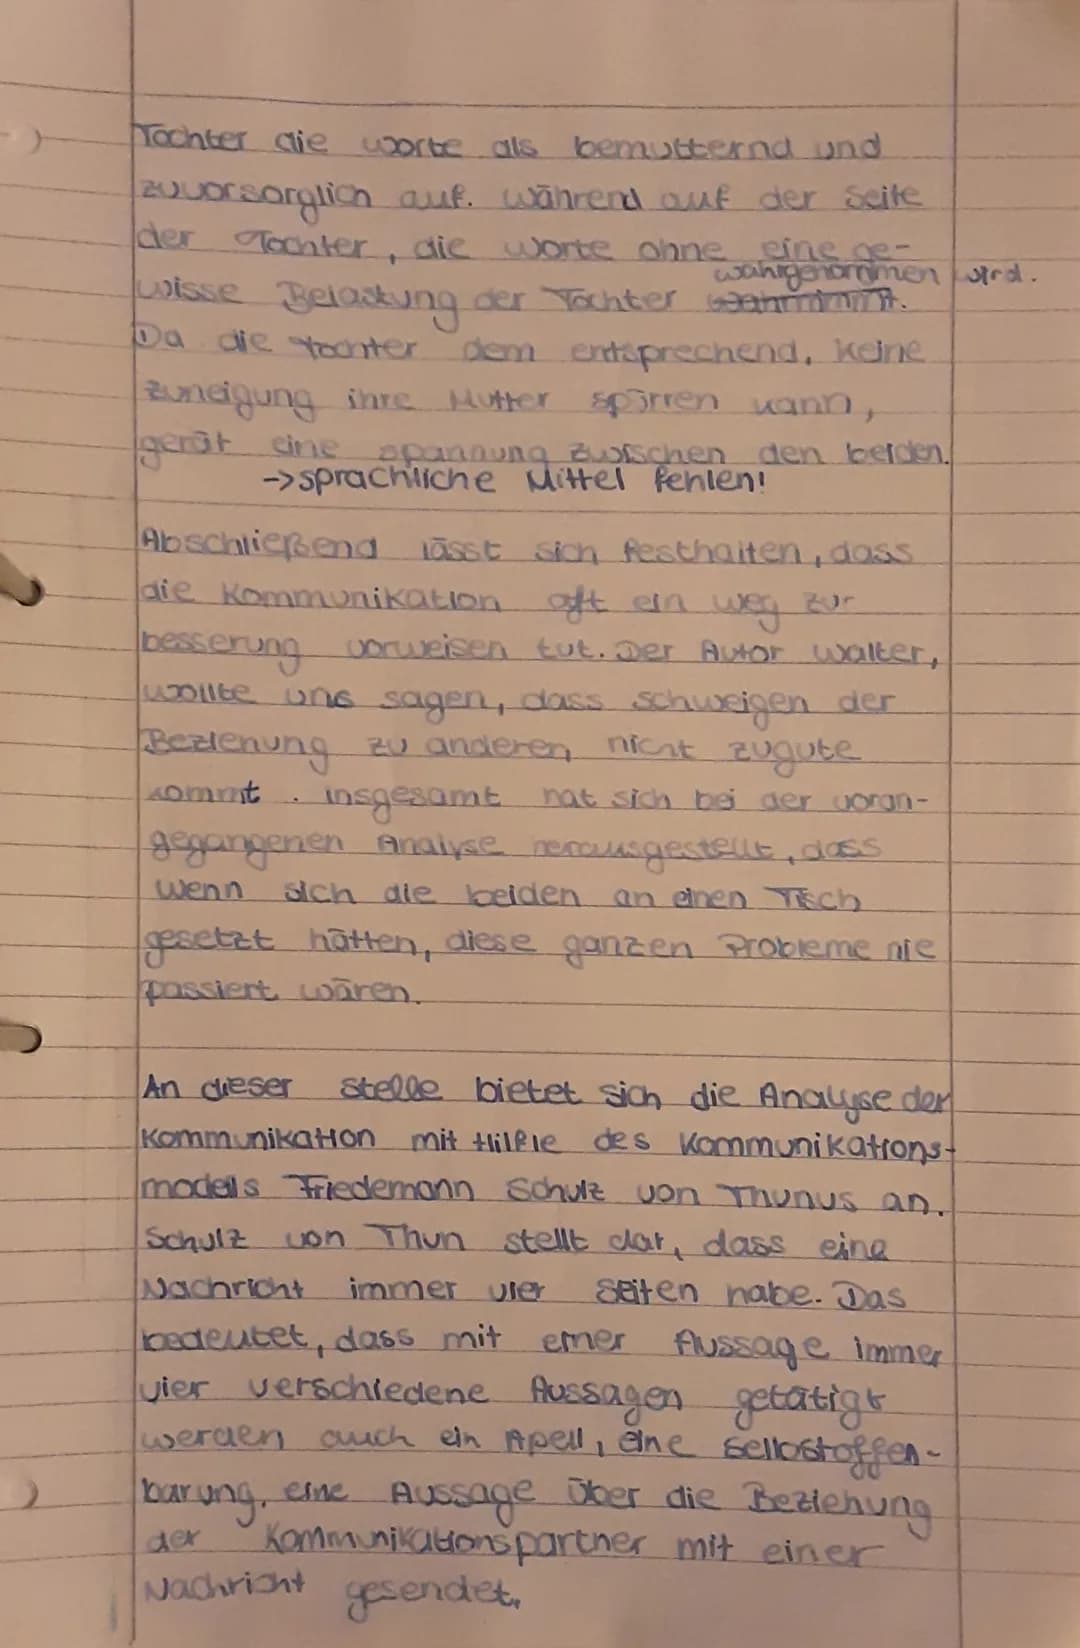 Tochter die worte als bemutternd und
zuvorsorglich auf. Während auf der Seite
der Tochter, die Worte ohne eine ge-
wahrgenommen wird.
wisse Belastung der Tochter wahrnimmt.
Da die tochter dem entsprechend, keine
Zuneigung ihre Mutter spürren kann,
gerät eine spannung zwischen den beiden.
->sprachliche Mittel fehlen!
Abschließend lässt sich festhalten, dass
die Kommunikation oft ein weg zur
besserung vorweisen tut. Der Autor walter,
wollte uns sagen, dass schweigen der
Beziehung zu anderen nicht zugute
kommt. insgesamt hat sich bei der voran-
gegangenen Analyse herausgestellt, dass
wenn sich die beiden an einen Tisch
gesetzt hätten, diese ganzen Probleme nie
passiert wären.
An dieser stelle bietet sich die Analyse der
Kommunikation mit Hilfe des Kommunikations-
modells Friedemann Schulz von Thunus an.
Schulz von Thun stellt dar, dass eine
Nachricht immer vier seiten habe. Das
bedeutet, dass mit einer Aussage immer
vier verschiedene Aussagen getätigt
werden auch ein Apell, eine Selbstoffen-
barung, eine Aussage über die Beziehung
der Kommunikationspartner mit einer
Nachricht gesendet.